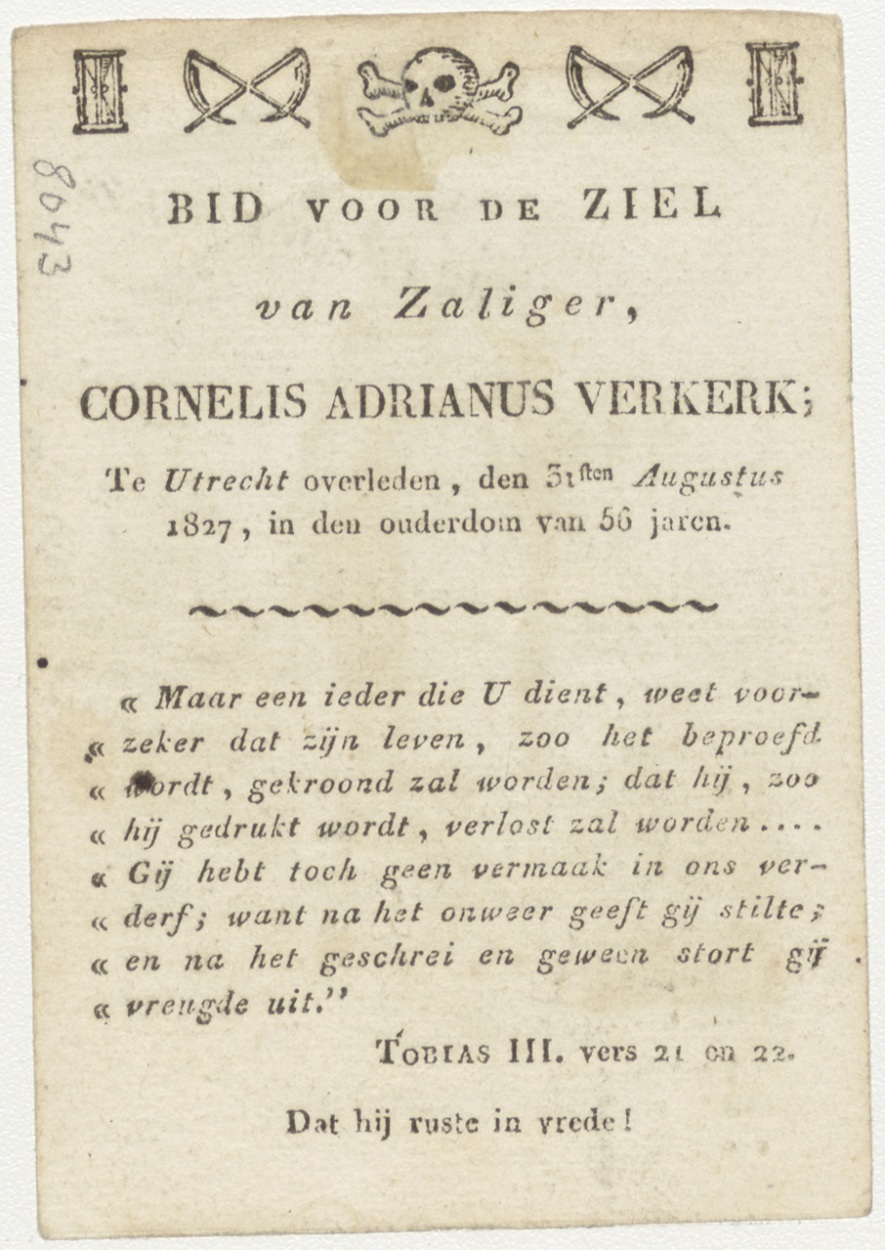 BID VOOR DE ZIEL
van Zaliger,
CORNELIS ADRIANUS VERKERK;
Te Utrecht overleden, den 31sten Augustus
1827, in den ouderdom van 56 jaren.
« Maar een ieder die U dient, weet voor-
« zeker dat zijn leven, zoo het beproefd
« wordt, gekroond zal worden; dat hij, zoo
« hij gedrukt wordt, verlost zal worden....
« Gij hebt toch geen vermaak in ons ver-
« derf; want na het onweer geeft gij stilte;
« en na het geschrei en geween stort gij
« vreugde uit.”
TOBIAS III. vers 21 en 22.
Dat hij ruste in vrede!
8043